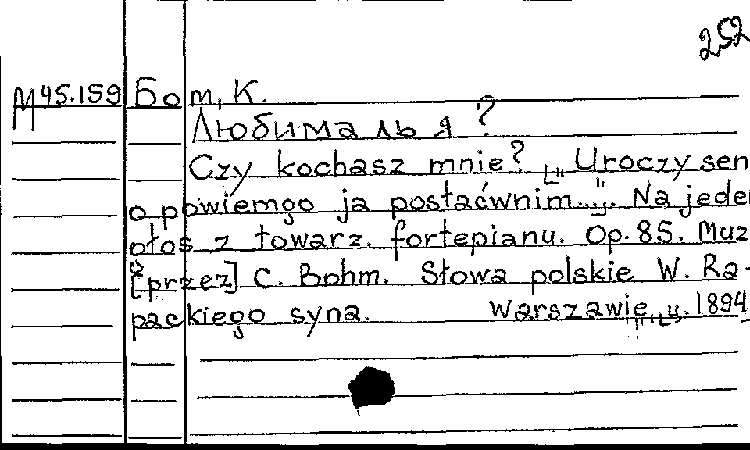 252
М45.159 Бом, К.
Любима ль я?
Czy kochasz mnie? „Uroczy sen
opowiem go ja postać w nim...". Na jeden
głos z towarz. fortepianu. Op. 85. Muz
[przez] C. Bohm. Słowa polskie W. Ra-
packiego syna. Warszawie, u. 1894